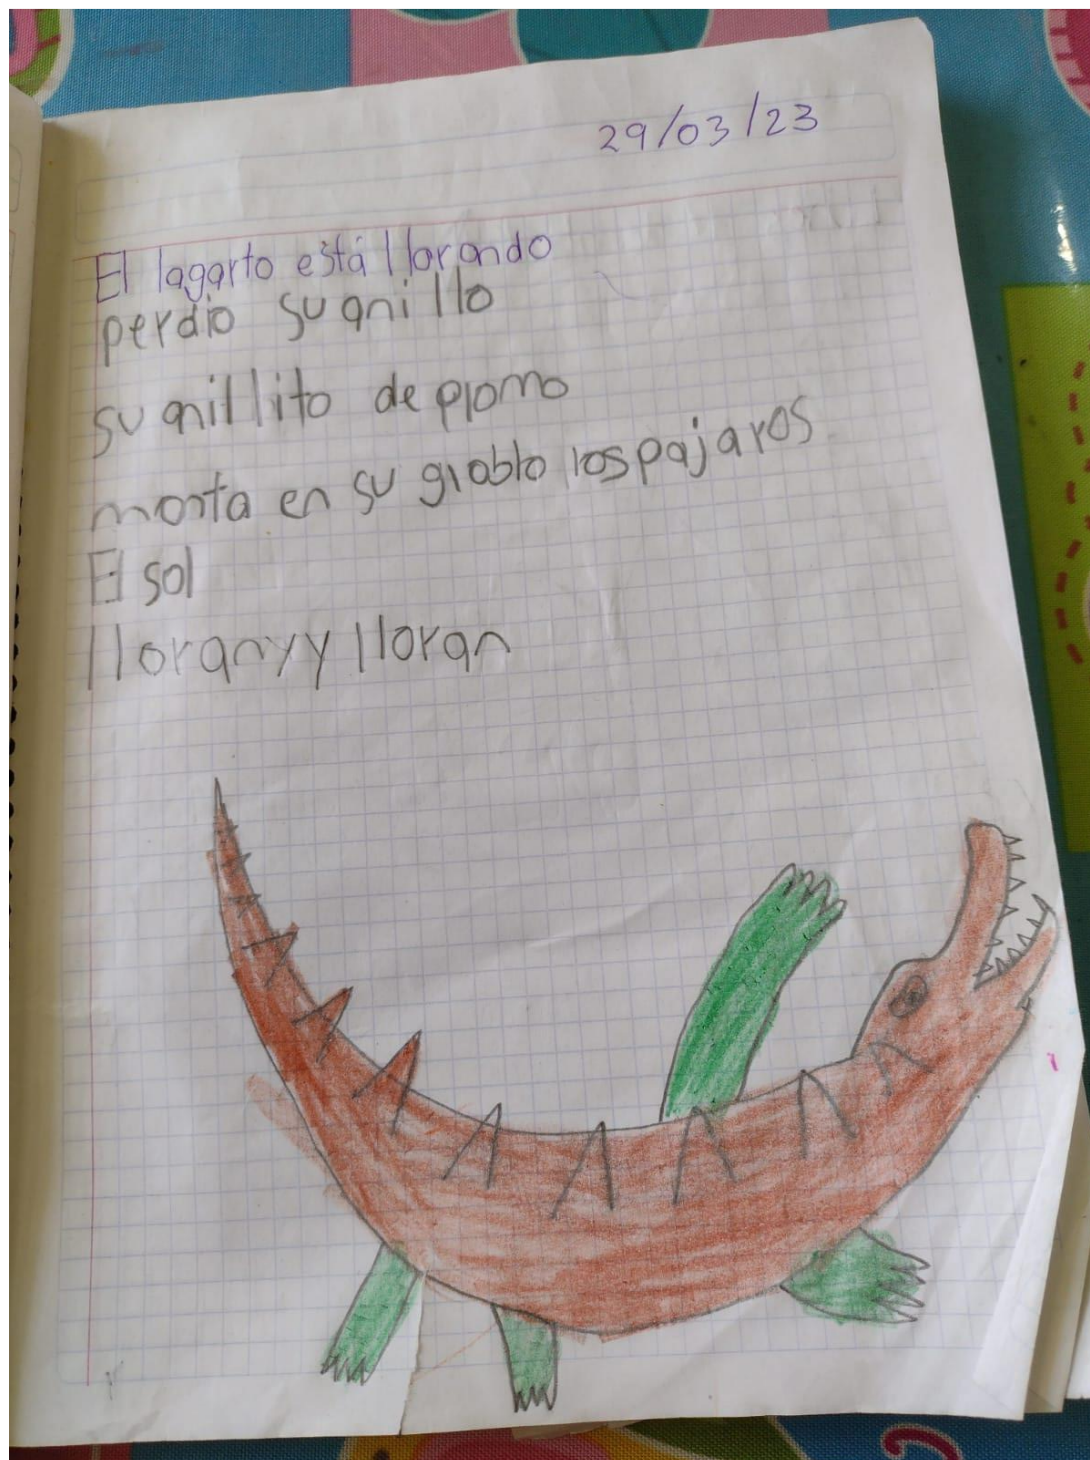 29/03/23
El lagarto está llorando
perdio su anillo
su anillito de plomo
monta en su globlo los pajaros
El sol
lloranyy lloran